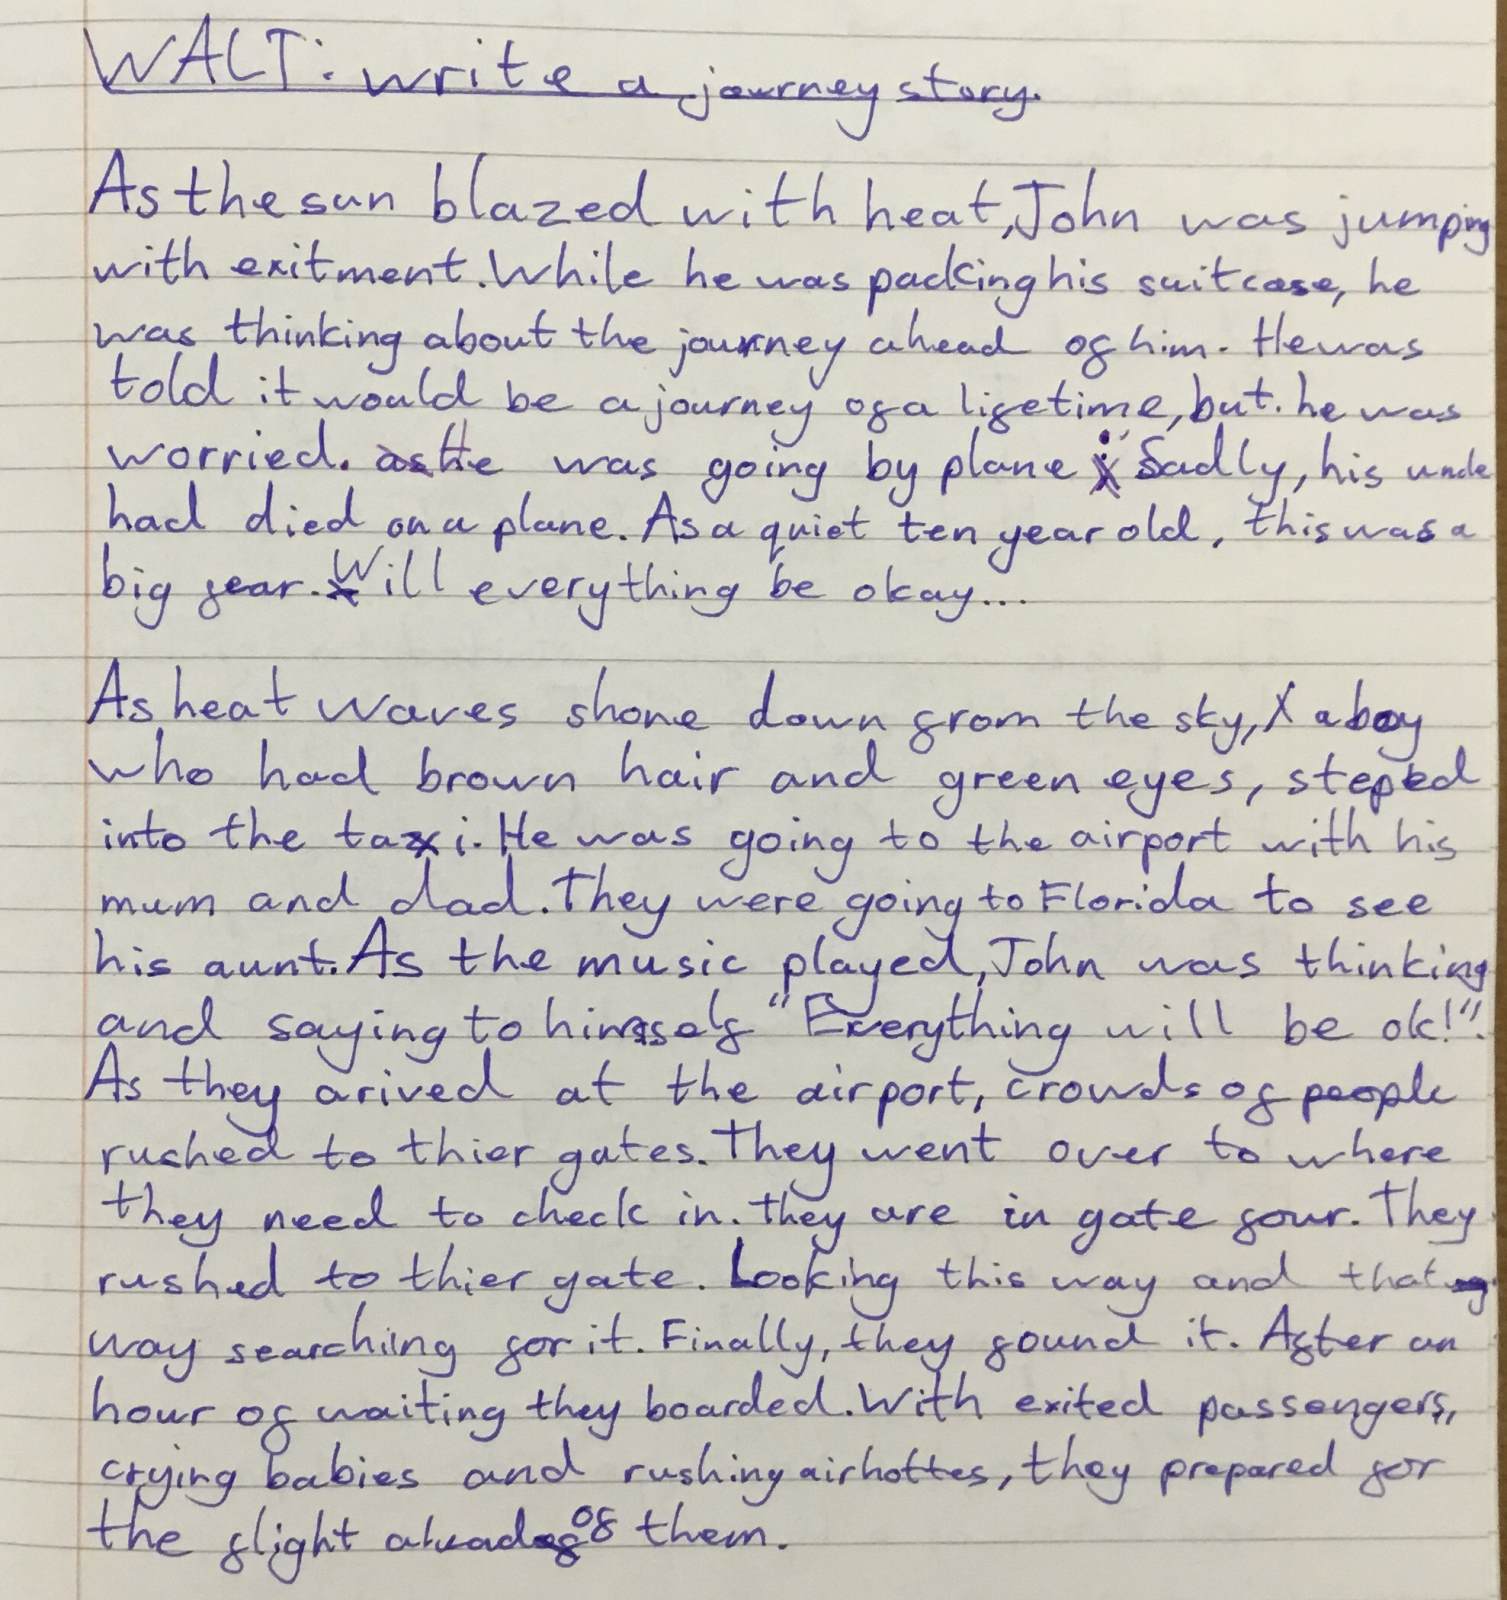 WALT: write a journey story.
As the sun blazed with heat, John was jumping
with exitment. While he was packing his suitcase, he
was thinking about the journey ahead of him. He was
told it would be a journey of a lifetime, but he was
worried. as He was going by plane. Sadly, his uncle
had died on a plane. As a quiet ten year old, this was a
big fear. Will everything be okay...
As heat waves shone down from the sky, a boy
who had brown hair and green eyes, steped
into the taxi. He was going to the airport with his
mum and dad. They were going to Florida to see
his aunt. As the music played, John was thinking
and saying to himself "Everything will be ok!".
As they arived at the airport, crowds of people
rushed to thier gates. They went over to where
they need to check in. They are in gate four. They
rushed to thier gate. Looking this way and that
way searching for it. Finally, they found it. After an
hour of waiting they boarded. With exited passengers,
crying babies and rushing airhottes, they prepared for
the flight ahead of them.